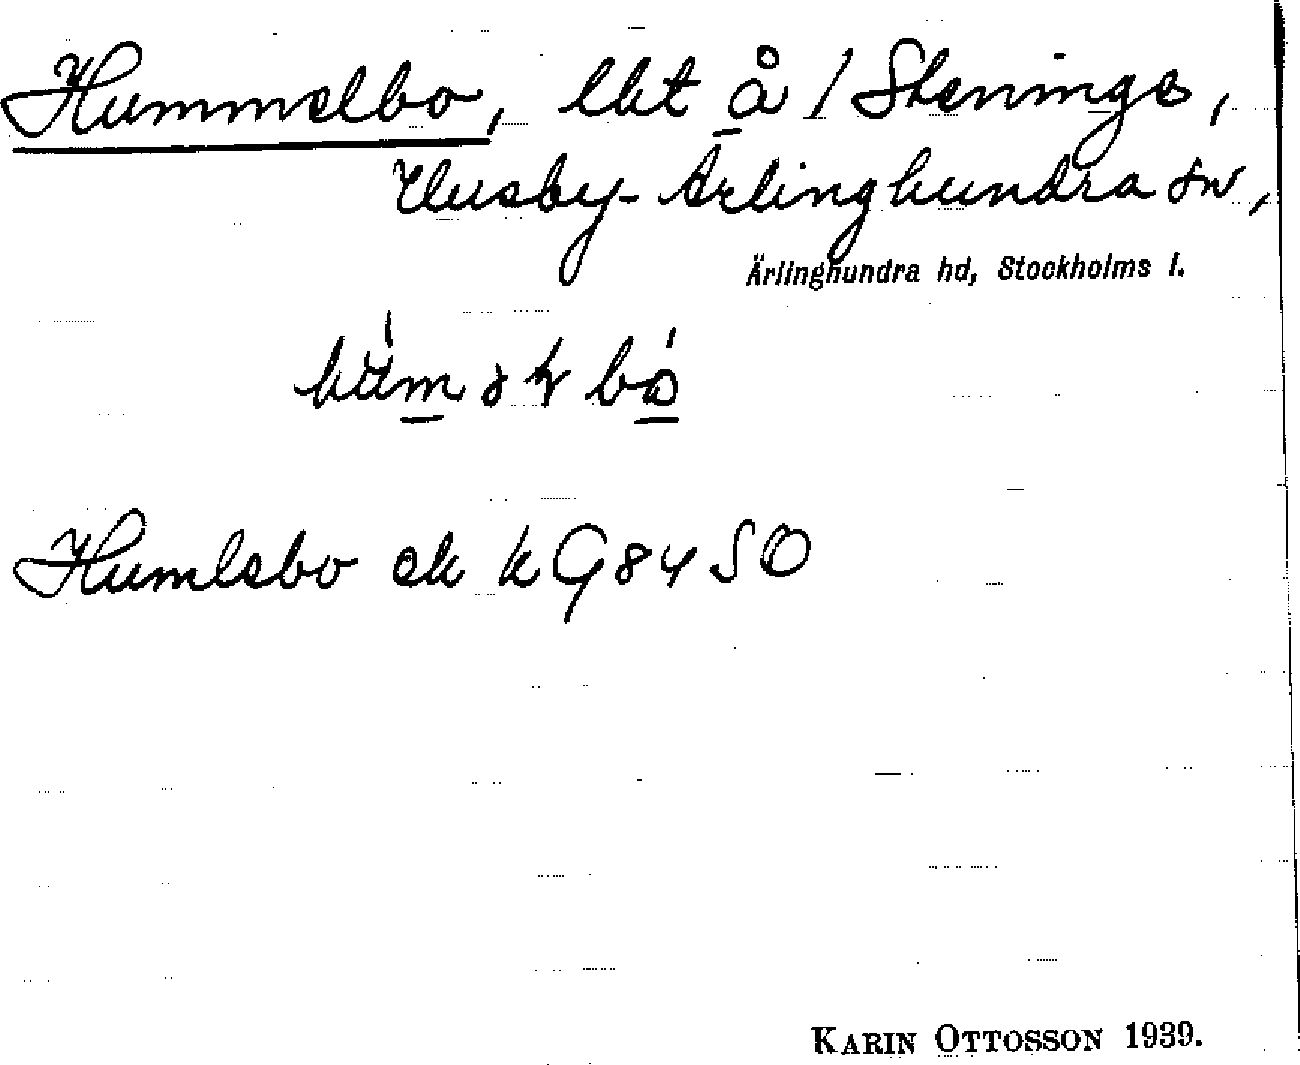 Hummelbo, lht å / Steninge,
Husby-Ärlinghundra sn,
Ärlinghundra hd, Stockholms l.
Humlebo ek k G 84 SO
KARIN OTTOSSON 1939.